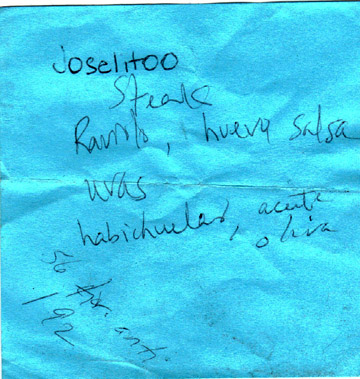 Joselitoo
Steak
huevo salsa
uvas
habichuelas, aceite
oliva
56
192